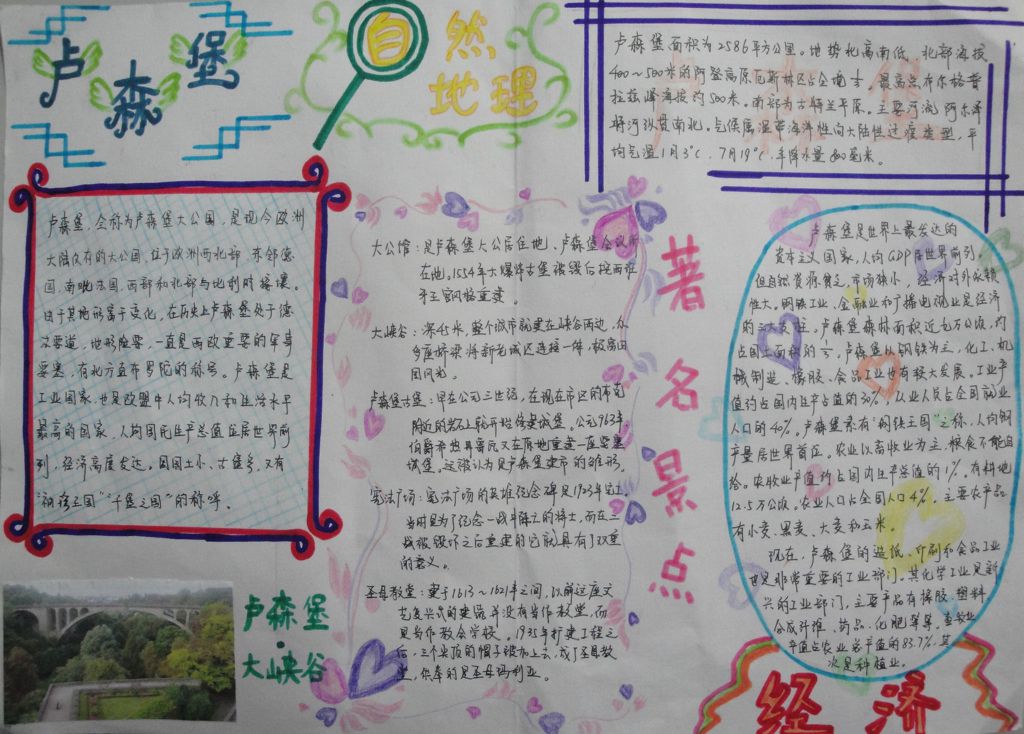 卢森堡
自然
地理
卢森堡面积为2586平方公里。地势北高南低，北部海拔
400～500米的阿登高原瓦斯林区占全境⅓。最高点布尔格普
拉兹峰海拔约500米。南部为古特兰平原。主要河流阿尔泽
特河纵贯南北。气候属温带海洋性向大陆性过渡类型，平
均气温1月3℃，7月19℃，年降水量800毫米。
卢森堡，全称为卢森堡大公国，是现今欧洲
大陆仅存的大公国，位于欧洲西北部，东邻德
国，南毗法国，西部和北部与比利时接壤。
由于其地形富于变化，在历史上卢森堡处于德
法要道，地形险要，一直是西欧重要的军事
要塞，有北方直布罗陀的称号。卢森堡是
工业国家，也是欧盟中人均收入和生活水平
最高的国家，人均国民生产总值位居世界前
列，经济高度发达。因国土小、古堡多，又有
"袖珍王国""千堡之国"的称呼。
卢森堡
·
大峡谷
著名景点
大公馆：是卢森堡大公居住地、卢森堡会议所
在地，1554年大爆炸古堡被毁后按西班
牙王宫风格重建。
大峡谷：深40米，整个城市就建在峡谷两边，众
多座桥梁将新老城区连接一体，极富田
园风光。
卢森堡古堡：早在公司三世纪，在现在市区的布克
附近的岩石上就开始修建城堡。公元963年
伯爵希热弗雷瓦又在原地重建一座要塞
城堡，这被认为是卢森堡建市的雏形。
宪法广场：宪法广场的英雄纪念碑是1923年完工，
当时是为了纪念一战牛阵亡的将士，而在二
战被毁坏之后重建的它就具有了双重
的意义。
圣母教堂：建于1613～1621年之间，以前这座文
艺复兴式的建筑并没有当作教堂，而
是当作教会学校，1935年扩建工程之
后，三个尖顶的帽子被加上去，成了圣母教
堂，供奉的是圣母玛利亚。
卢森堡是世界上最发达的
资本主义国家，人均GDP居世界前列。
但自然资源贫乏，市场狭小，经济对外依赖
性大。钢铁工业、金融业和广播电视业是经济
的三大支柱。卢森堡森林面积近9万公顷，约
占国土面积的⅓。卢森堡以钢铁为主，化工、机
械制造、橡胶、食品工业也有较大发展。工业产
值约占国内生产总值的30%，从业人员占全国就业
人口的40%。卢森堡素有"钢铁王国"之称，人均钢
产量居世界首位。农业以畜牧业为主，粮食不能自
给。农牧业产值约占国内生产总值的1%。有耕地
12.5万公顷。农业人口占全国人口4%。主要农产品
有小麦、黑麦、大麦和玉米。
现在，卢森堡的造纸、印刷和食品工业
也是非常重要的工业部门。其化学工业是新
兴的工业部门，主要产品有橡胶、塑料
合成纤维、药品、化肥等等。畜牧业
产值占农业总产值的83.7%，其
次是种植业。
经济